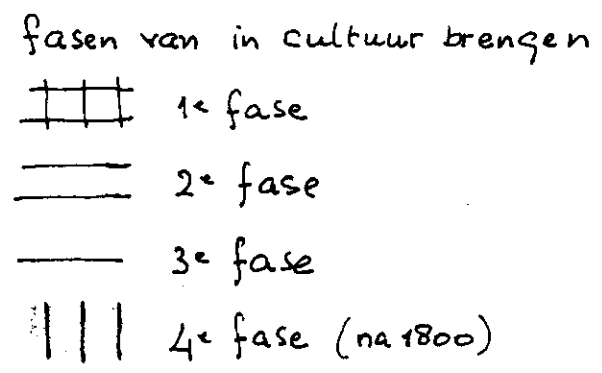 fasen van in cultuur brengen
1e fase
2e fase
3e fase
4e fase (na 1800)